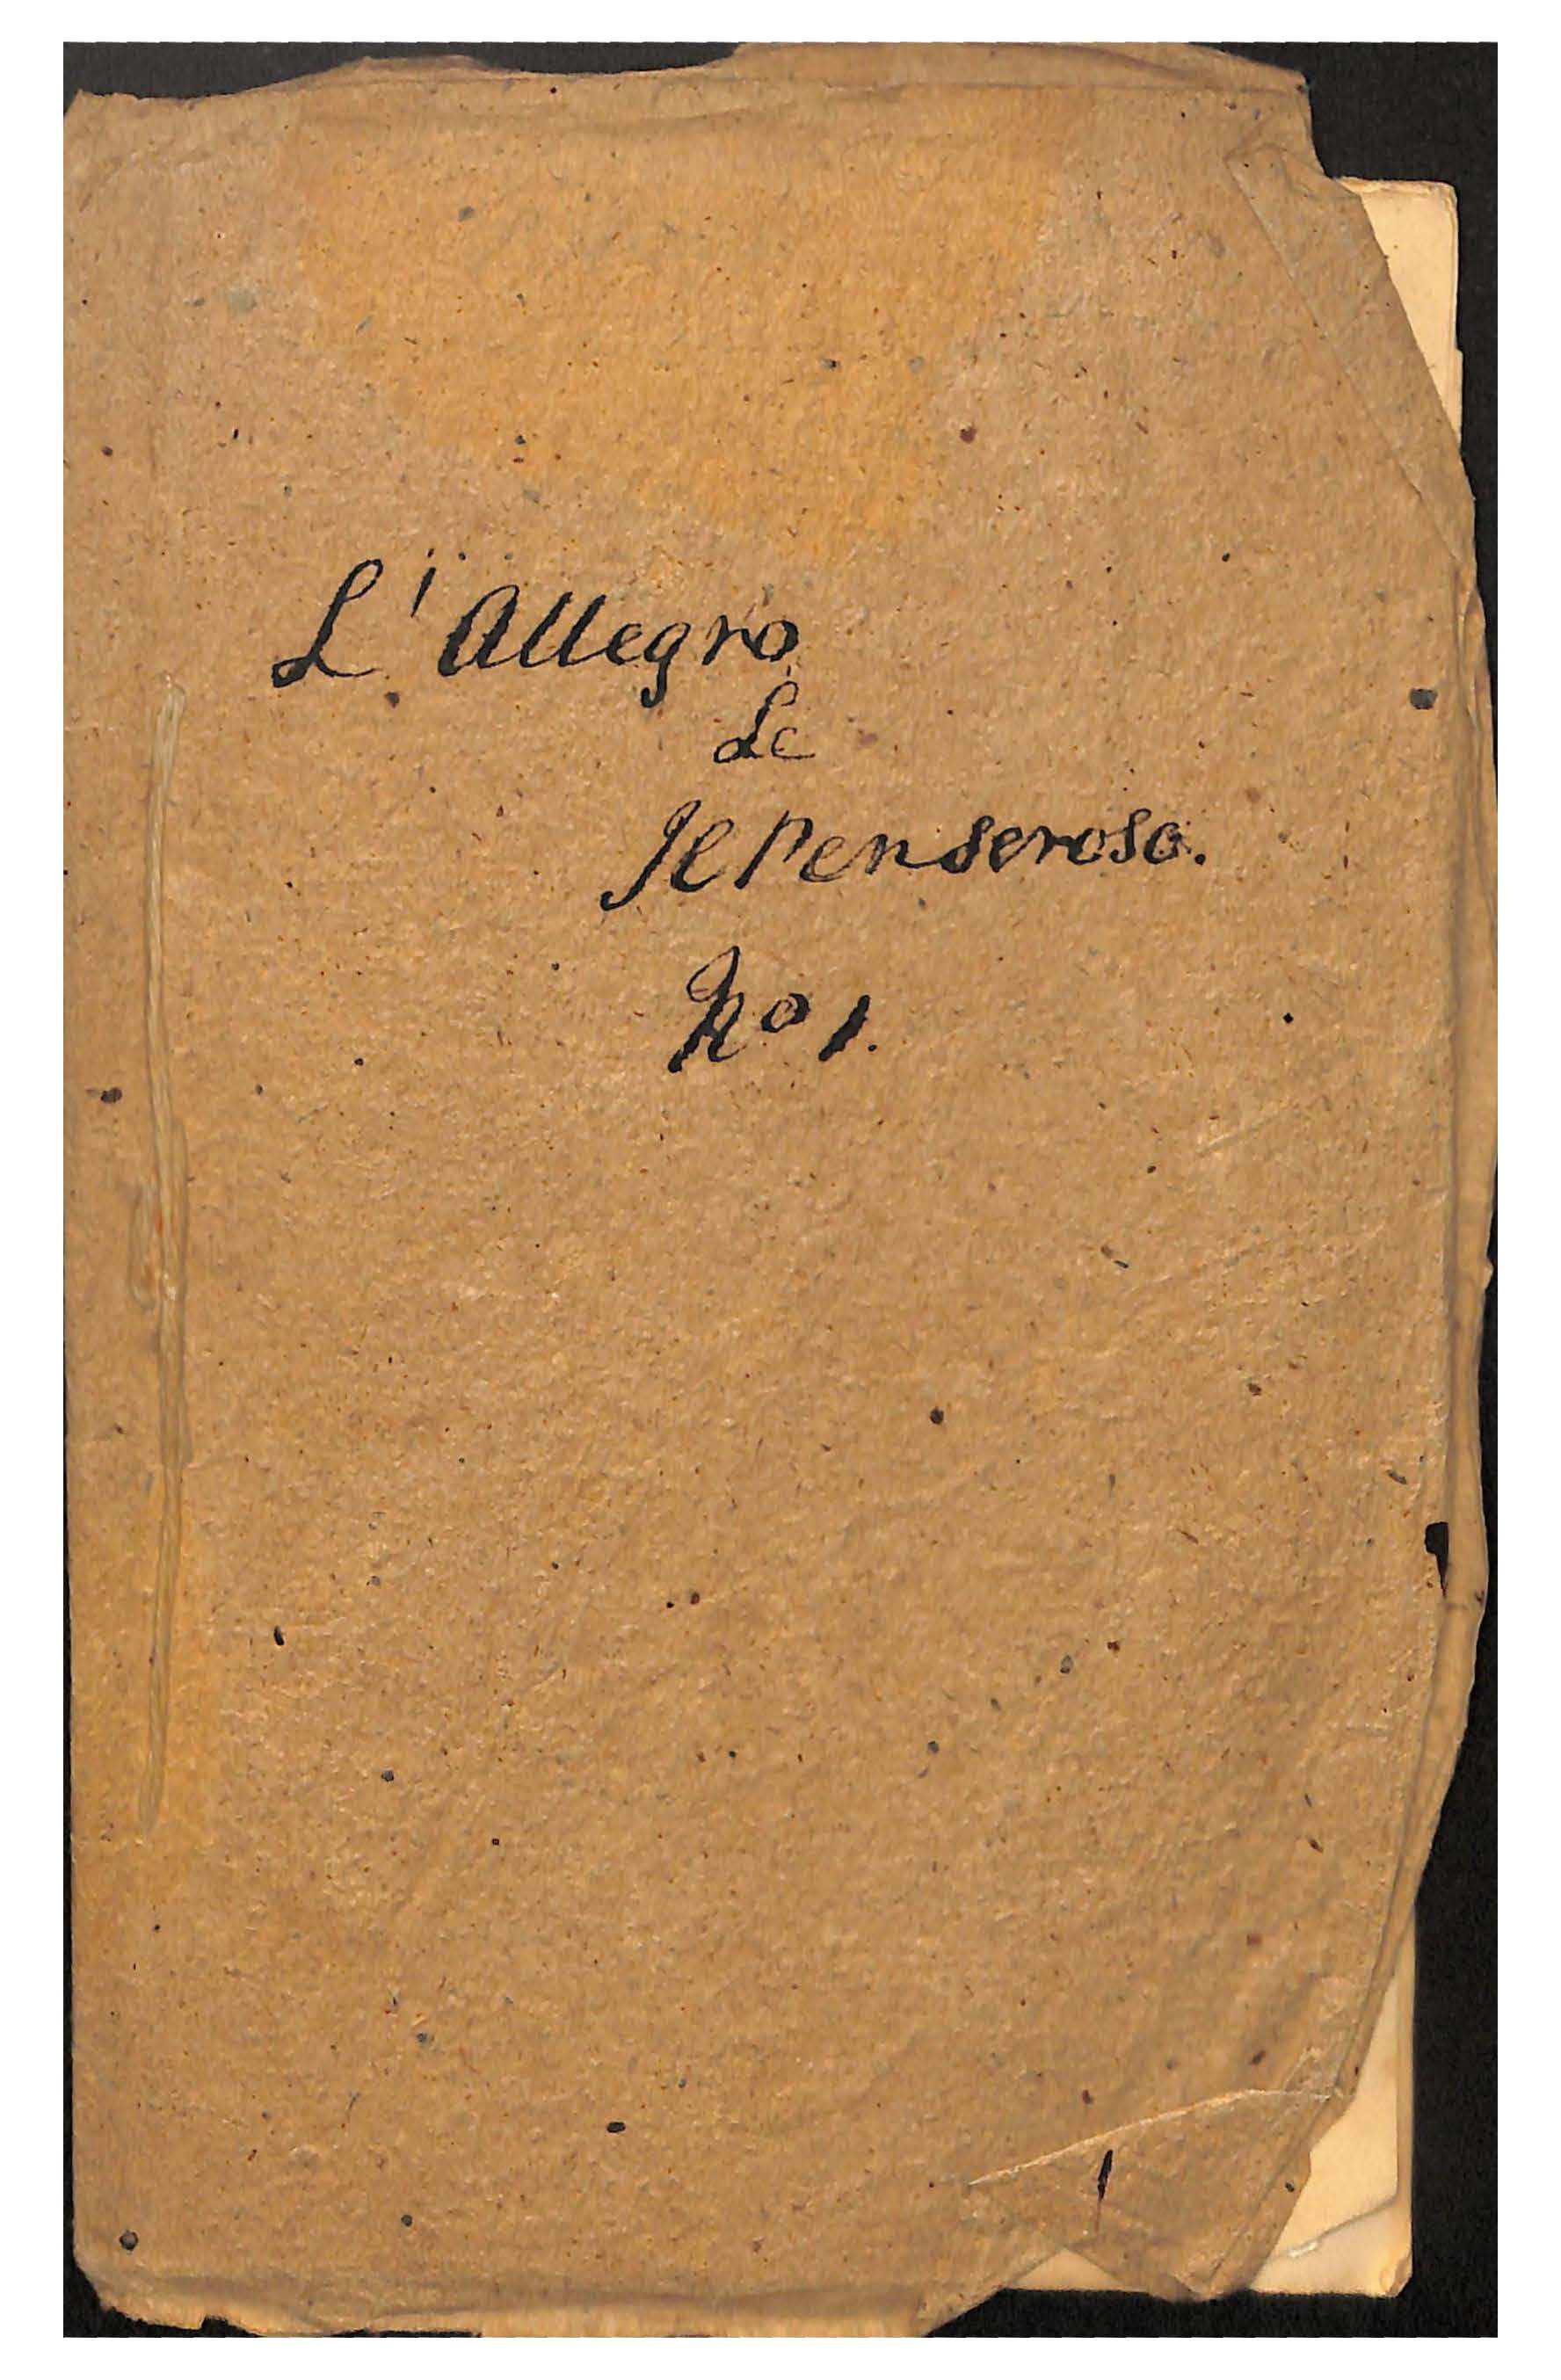 L'Allegro
&c
Il Penseroso.
No 1.